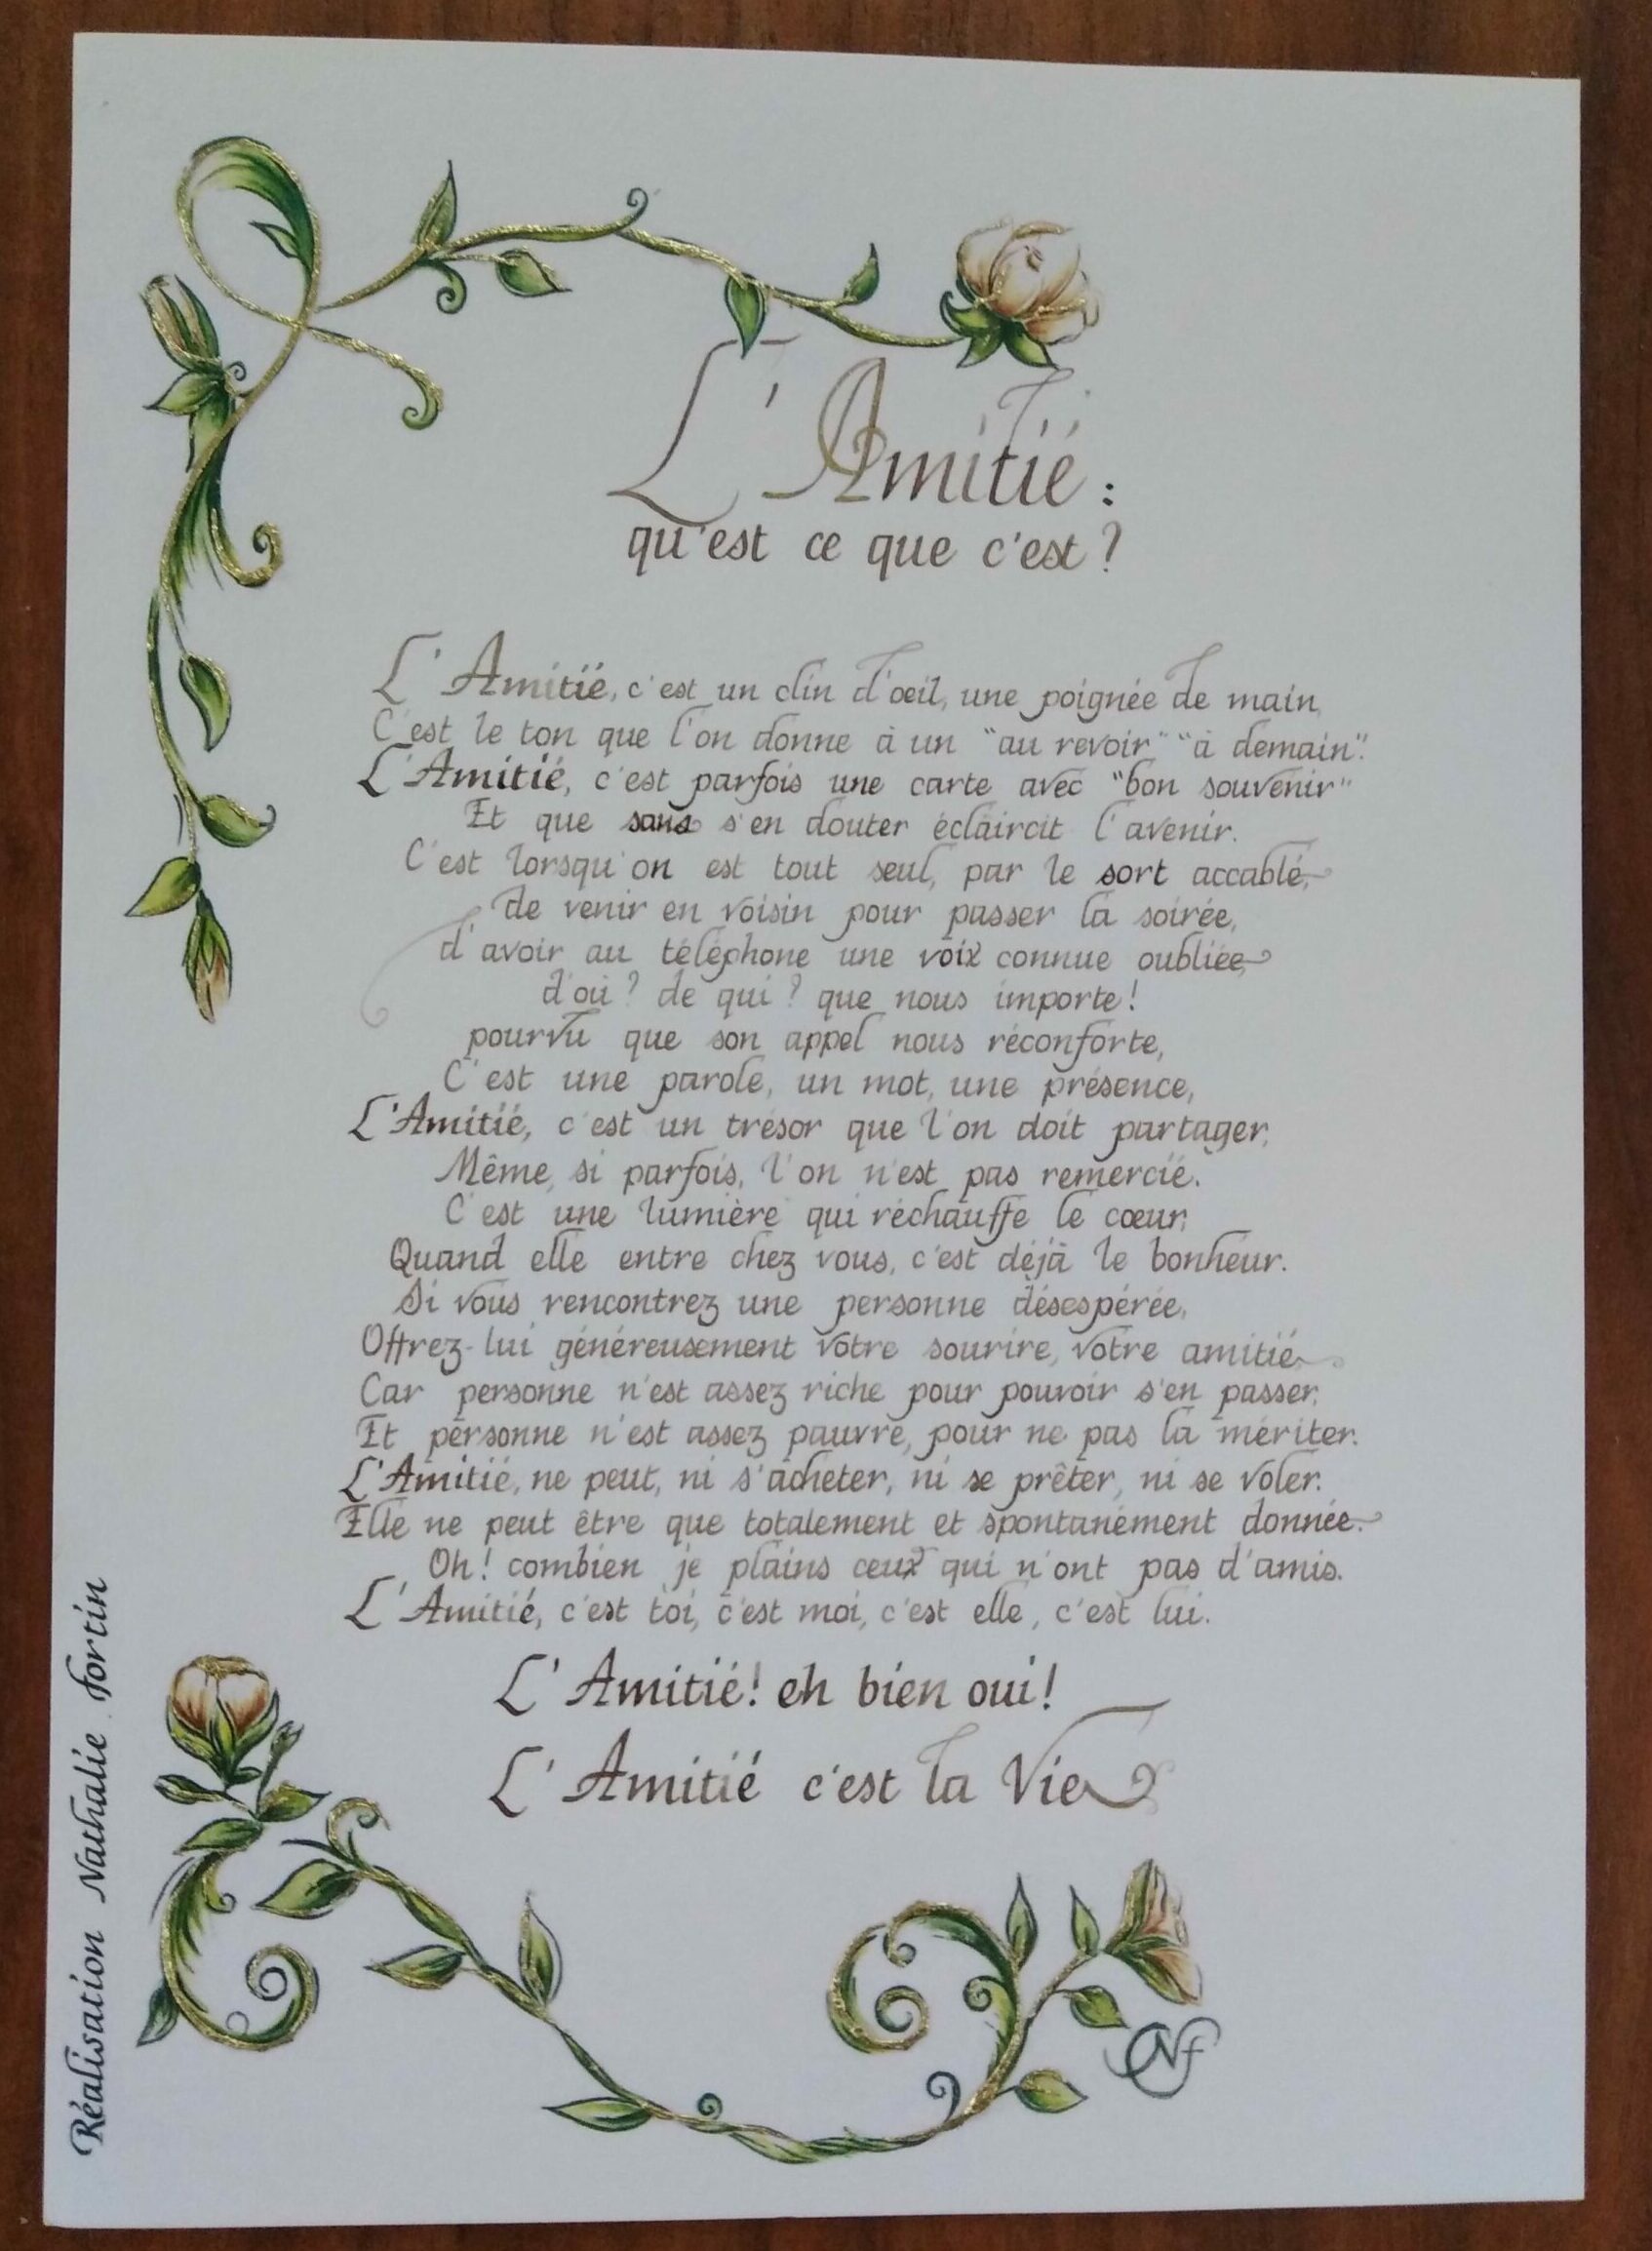 L'Amitié :
qu'est ce que c'est ?
L'Amitié, c'est un clin d'oeil, une poignée de main,
C'est le ton que l'on donne à un "au revoir" "à demain".
L'Amitié, c'est parfois une carte avec "bon souvenir"
Et que sans s'en douter éclaircit l'avenir.
C'est lorsqu'on est tout seul, par le sort accablé,
de venir en voisin pour passer la soirée,
d'avoir au téléphone une voix connue oubliée,
d'où ? de qui ? que nous importe !
pourvu que son appel nous réconforte,
C'est une parole, un mot, une présence,
L'Amitié, c'est un trésor que l'on doit partager,
Même, si parfois, l'on n'est pas remercié.
C'est une lumière qui réchauffe le cœur,
Quand elle entre chez vous, c'est déjà le bonheur.
Si vous rencontrez une personne désespérée,
Offrez-lui généreusement votre sourire, votre amitié
Car personne n'est assez riche pour pouvoir s'en passer,
Et personne n'est assez pauvre, pour ne pas la mériter.
L'Amitié, ne peut, ni s'acheter, ni se prêter, ni se voler.
Elle ne peut être que totalement et spontanément donnée.
Oh ! combien je plains ceux qui n'ont pas d'amis.
L'Amitié, c'est toi, c'est moi, c'est elle, c'est lui.
L'Amitié ! eh bien oui !
L'Amitié c'est la Vie
Nf
Réalisation Nathalie Fortin